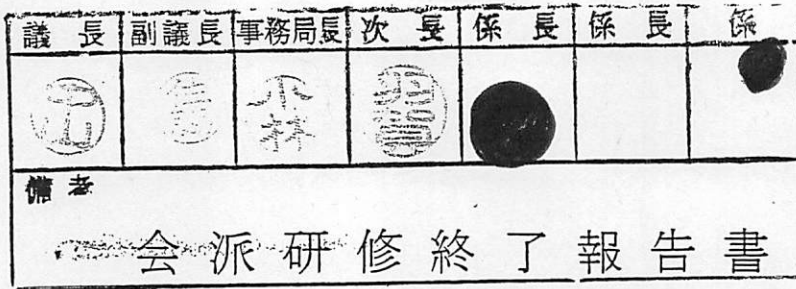 議長 副議長 事務局長 次長 係長 係長 係
小林
備考
会派研修終了報告書